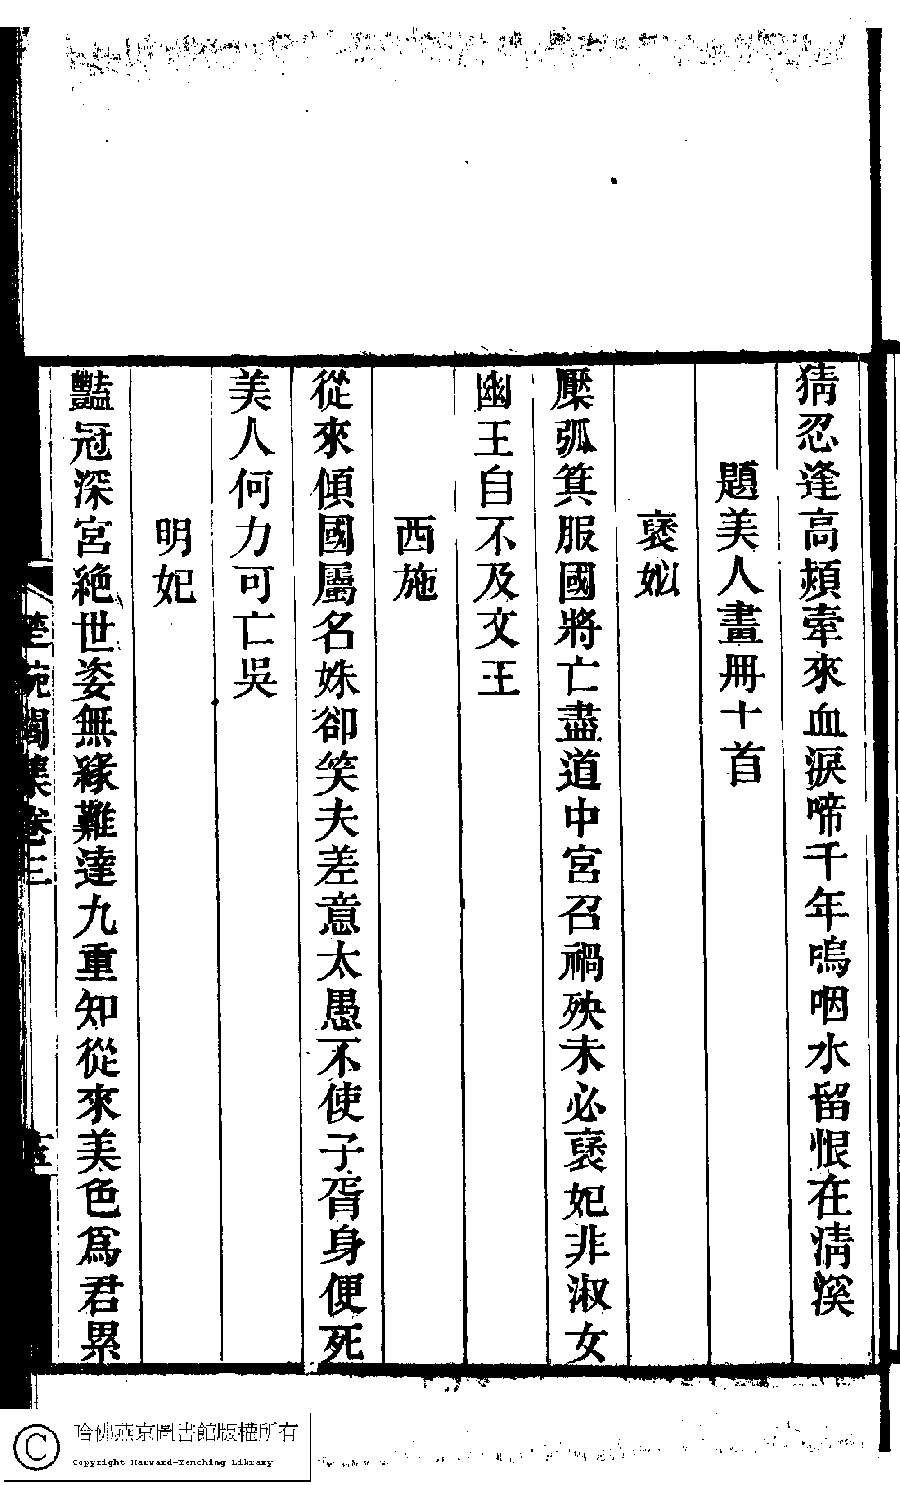 猜忍逢高熲牽來血淚啼千年嗚咽水留恨在淸溪
題美人畫冊十首
褒姒
檿弧箕服國將亡盡道中宮召禍殃未必褒妃非淑女
幽王自不及文王
西施
從來傾國屬名姝卻笑夫差意太愚不使子胥身便死
美人何力可亡吳
明妃
豔冠深宮絶世姿無緣難達九重知從來美色爲君累
集卷三
哈佛燕京圖書館版權所有
Copyright Harvard-Yenching Library